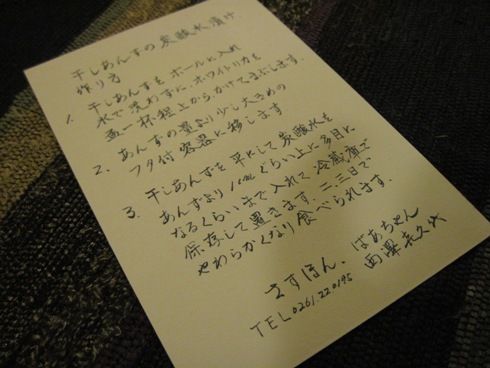 干しあんずの炭酸水漬け.
作り方
1. 干しあんずをボールに入れ
水で洗わずに、ホワイトリカを
盃一杯程上からかけてまぶします.
2. あんずの量より少し大きめの
フタ付容器に移します
3. 干しあんずを平にして炭酸水を
あんずより 1cmぐらい上に多目に
なるくらいまで入れて冷蔵庫で
保存して置きます. 二三日で
やわらかくなり食べられます.
さすぼん、ばあちゃん
西澤
TEL 0261.22.0195